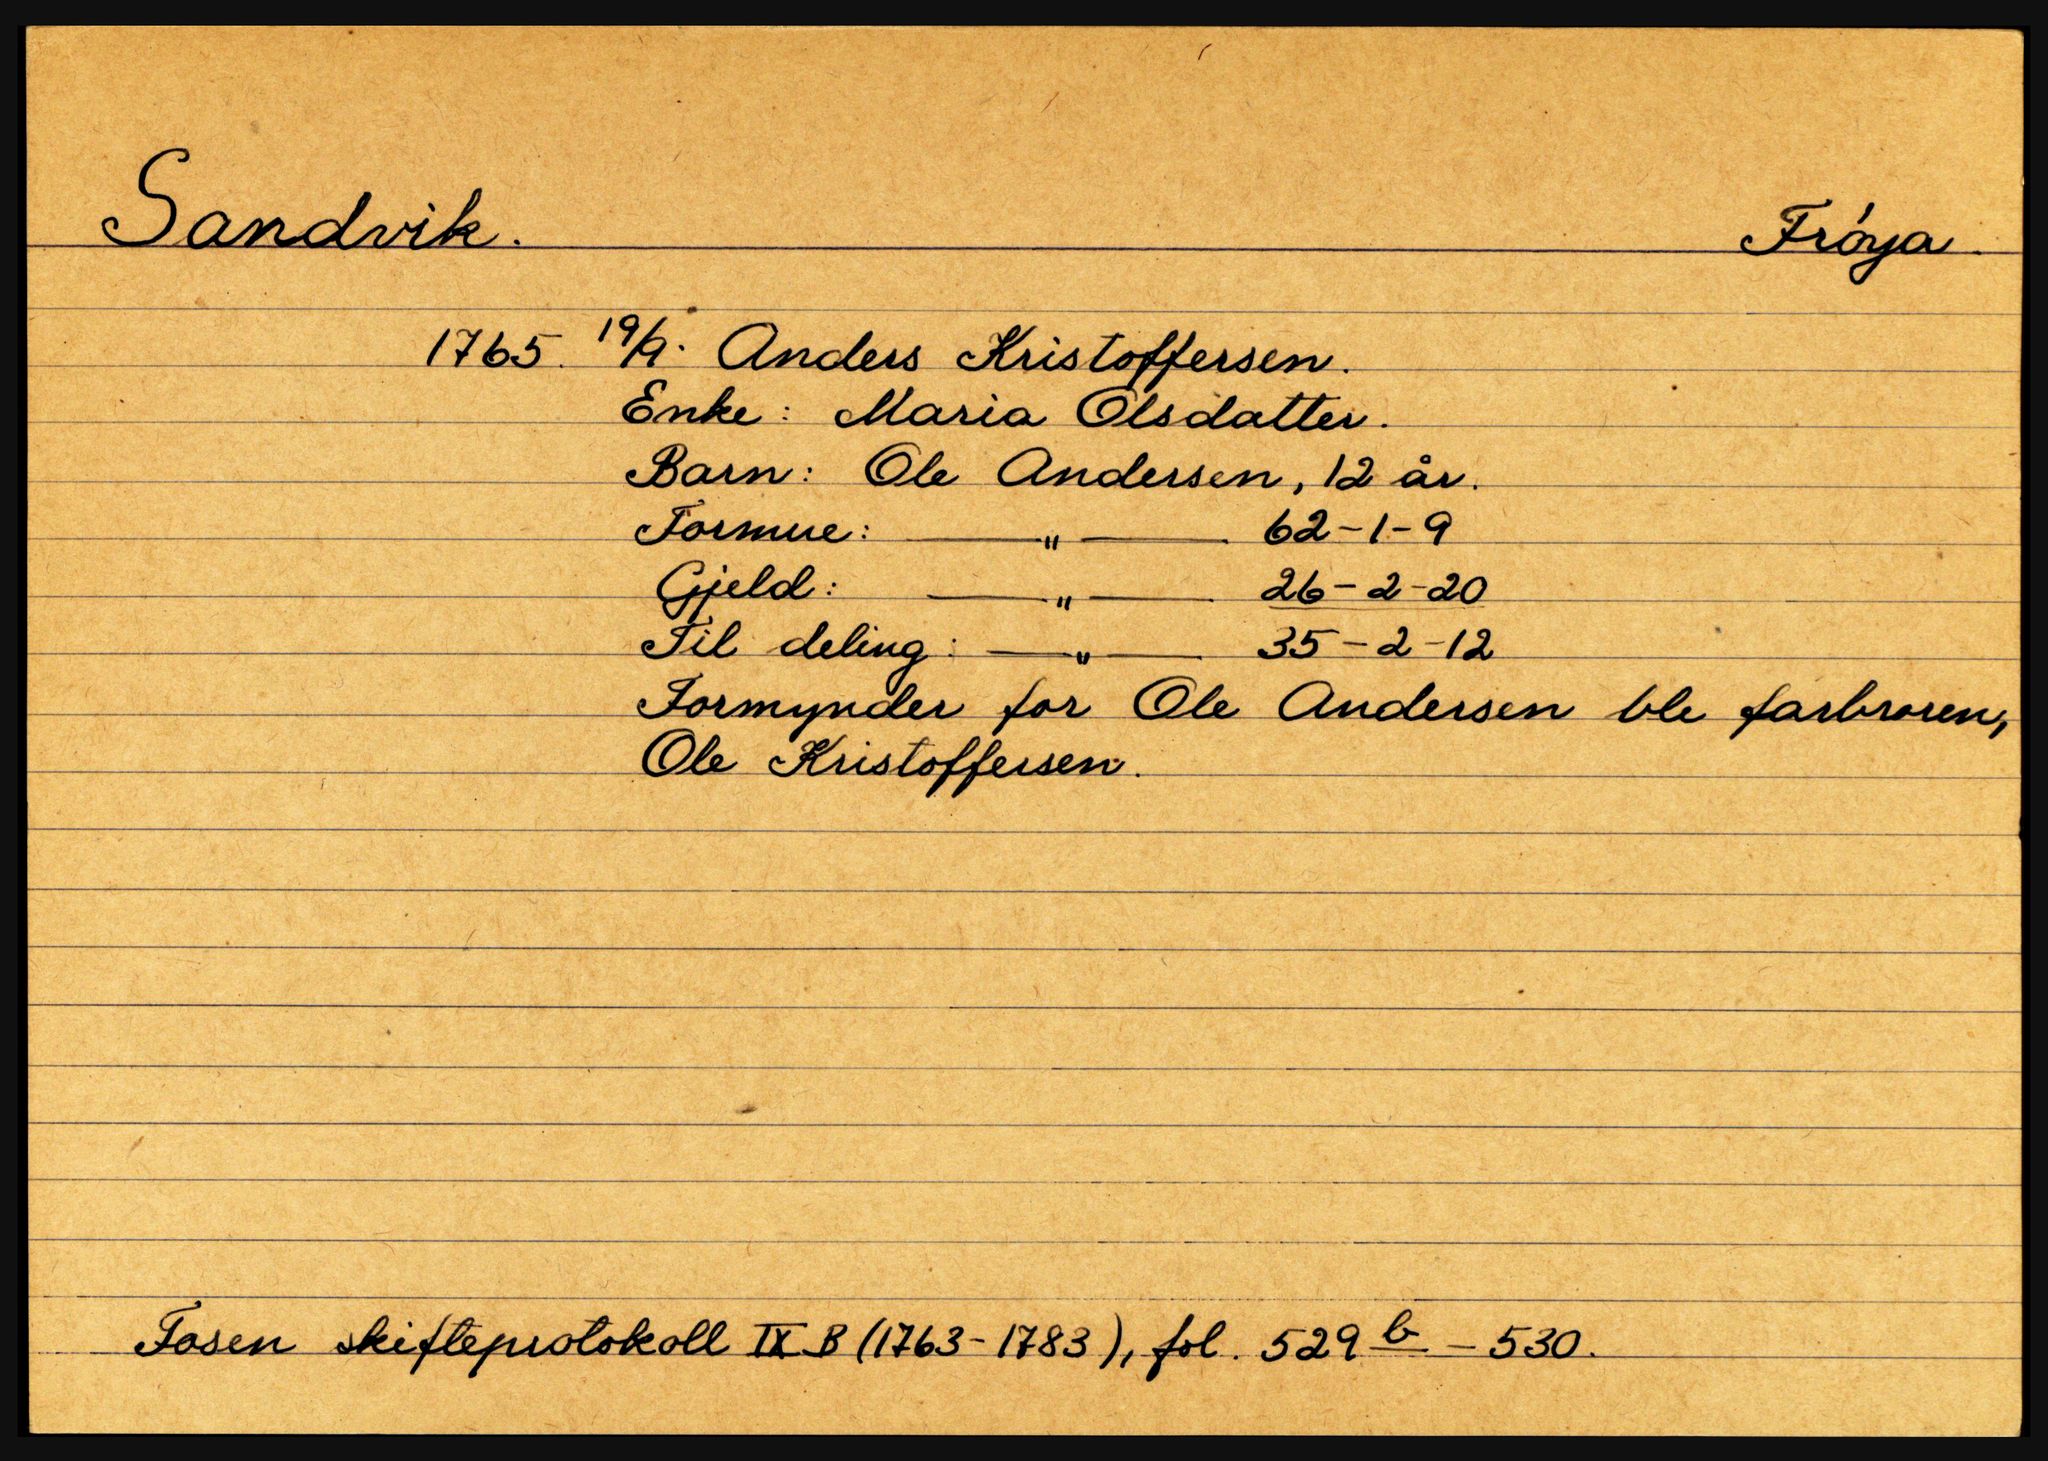 Sandvik. Fróya.
1765. 19/9. Anders Kristoffersen.
Enke: Maria Olsdatter.
Barn: Ole Andersen, 12 år.
Formue: — " — 62-1-9
Gjeld: — " — 26-2-20
Til deling: — " — 35-2-12
Formynder for Ole Andersen ble farbroren,
Ole Kristoffersen.
Fosen skifteprotokoll IX B (1763-1783), fol. 529 b - 530.